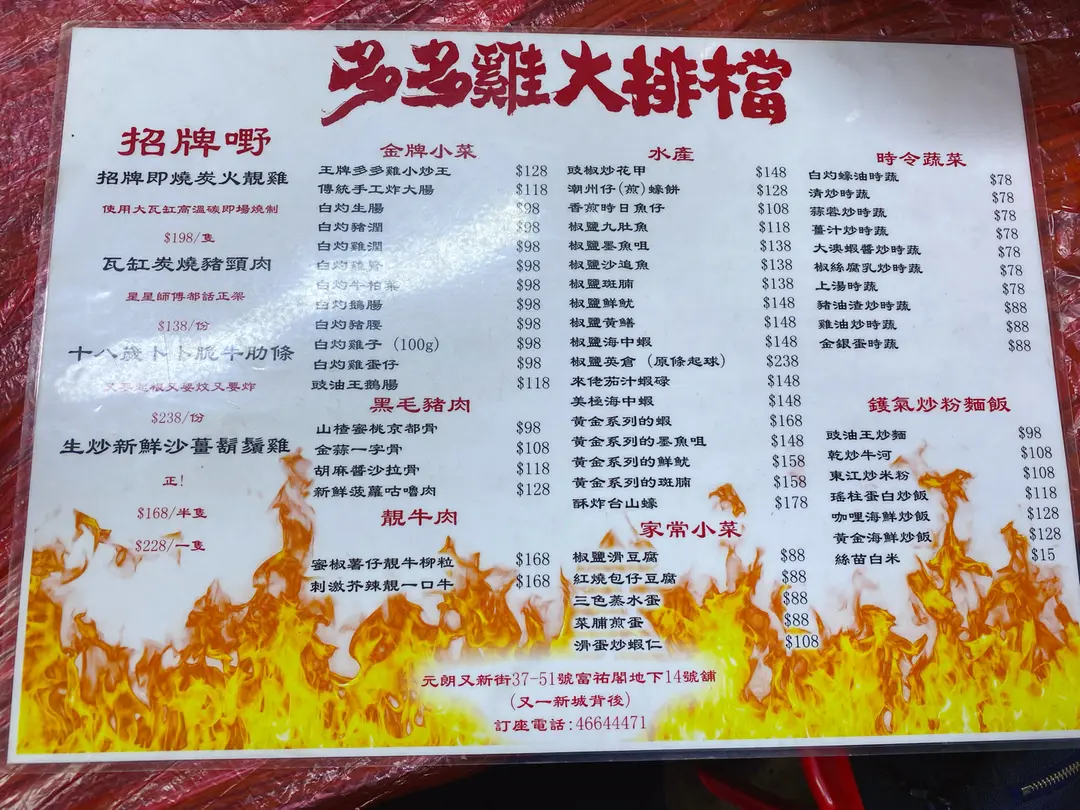 多多雞大排檔
招牌嘢
招牌即燒炭火靚雞
使用大瓦缸高溫碳即場燒制
$198/隻
瓦缸炭燒豬頸肉
星星師傅都話正架
$138/份
十八歲卜卜脆牛肋條
又要炆又要炸
$238/份
生炒新鮮沙薑鬍鬚雞
正!
$168/半隻
$228/一隻
金牌小菜
王牌多多雞小炒王 $128
傳統手工炸大腸 $118
白灼生腸 $98
白灼豬潤 $98
白灼雞潤 $98
白灼雞腎 $98
白灼牛柏葉 $98
白灼鵝腸 $98
白灼豬腰 $98
白灼雞子 (100g) $98
白灼雞蛋仔 $98
豉油王鵝腸 $118
黑毛豬肉
山楂蜜桃京都骨 $98
金蒜一字骨 $108
胡麻醬沙拉骨 $118
新鮮菠蘿咕嚕肉 $128
靚牛肉
蜜椒薯仔靚牛柳粒 $168
刺激芥辣靚一口牛 $168
水產
豉椒炒花甲 $148
潮州仔(煎)蠔餅 $128
香煎時日魚仔 $108
椒鹽九肚魚 $118
椒鹽墨魚咀 $138
椒鹽沙追魚 $138
椒鹽斑腩 $138
椒鹽鮮魷 $148
椒鹽黃鱔 $148
椒鹽海中蝦 $148
椒鹽英倉 (原條起球) $238
來佬茄汁蝦碌 $148
美極海中蝦 $148
黃金系列的蝦 $168
黃金系列的墨魚咀 $148
黃金系列的鮮魷 $158
黃金系列的斑腩 $158
酥炸台山蠔 $178
家常小菜
椒鹽滑豆腐 $88
紅燒包仔豆腐 $88
三色蒸水蛋 $88
菜脯煎蛋 $88
滑蛋炒蝦仁 $108
時令蔬菜
白灼蠔油時蔬 $78
清炒時蔬 $78
蒜蓉炒時蔬 $78
薑汁炒時蔬 $78
大澳蝦醬炒時蔬 $78
椒絲腐乳炒時蔬 $78
上湯時蔬 $78
豬油渣炒時蔬 $88
雞油炒時蔬 $88
金銀蛋時蔬 $88
鑊氣炒粉麵飯
豉油王炒麵 $98
乾炒牛河 $108
東江炒米粉 $108
瑤柱蛋白炒飯 $118
咖哩海鮮炒飯 $128
黃金海鮮炒飯 $128
絲苗白米 $15
元朗又新街37-51號富祐閣地下14號舖
(又一新城背後)
訂座電話:46644471